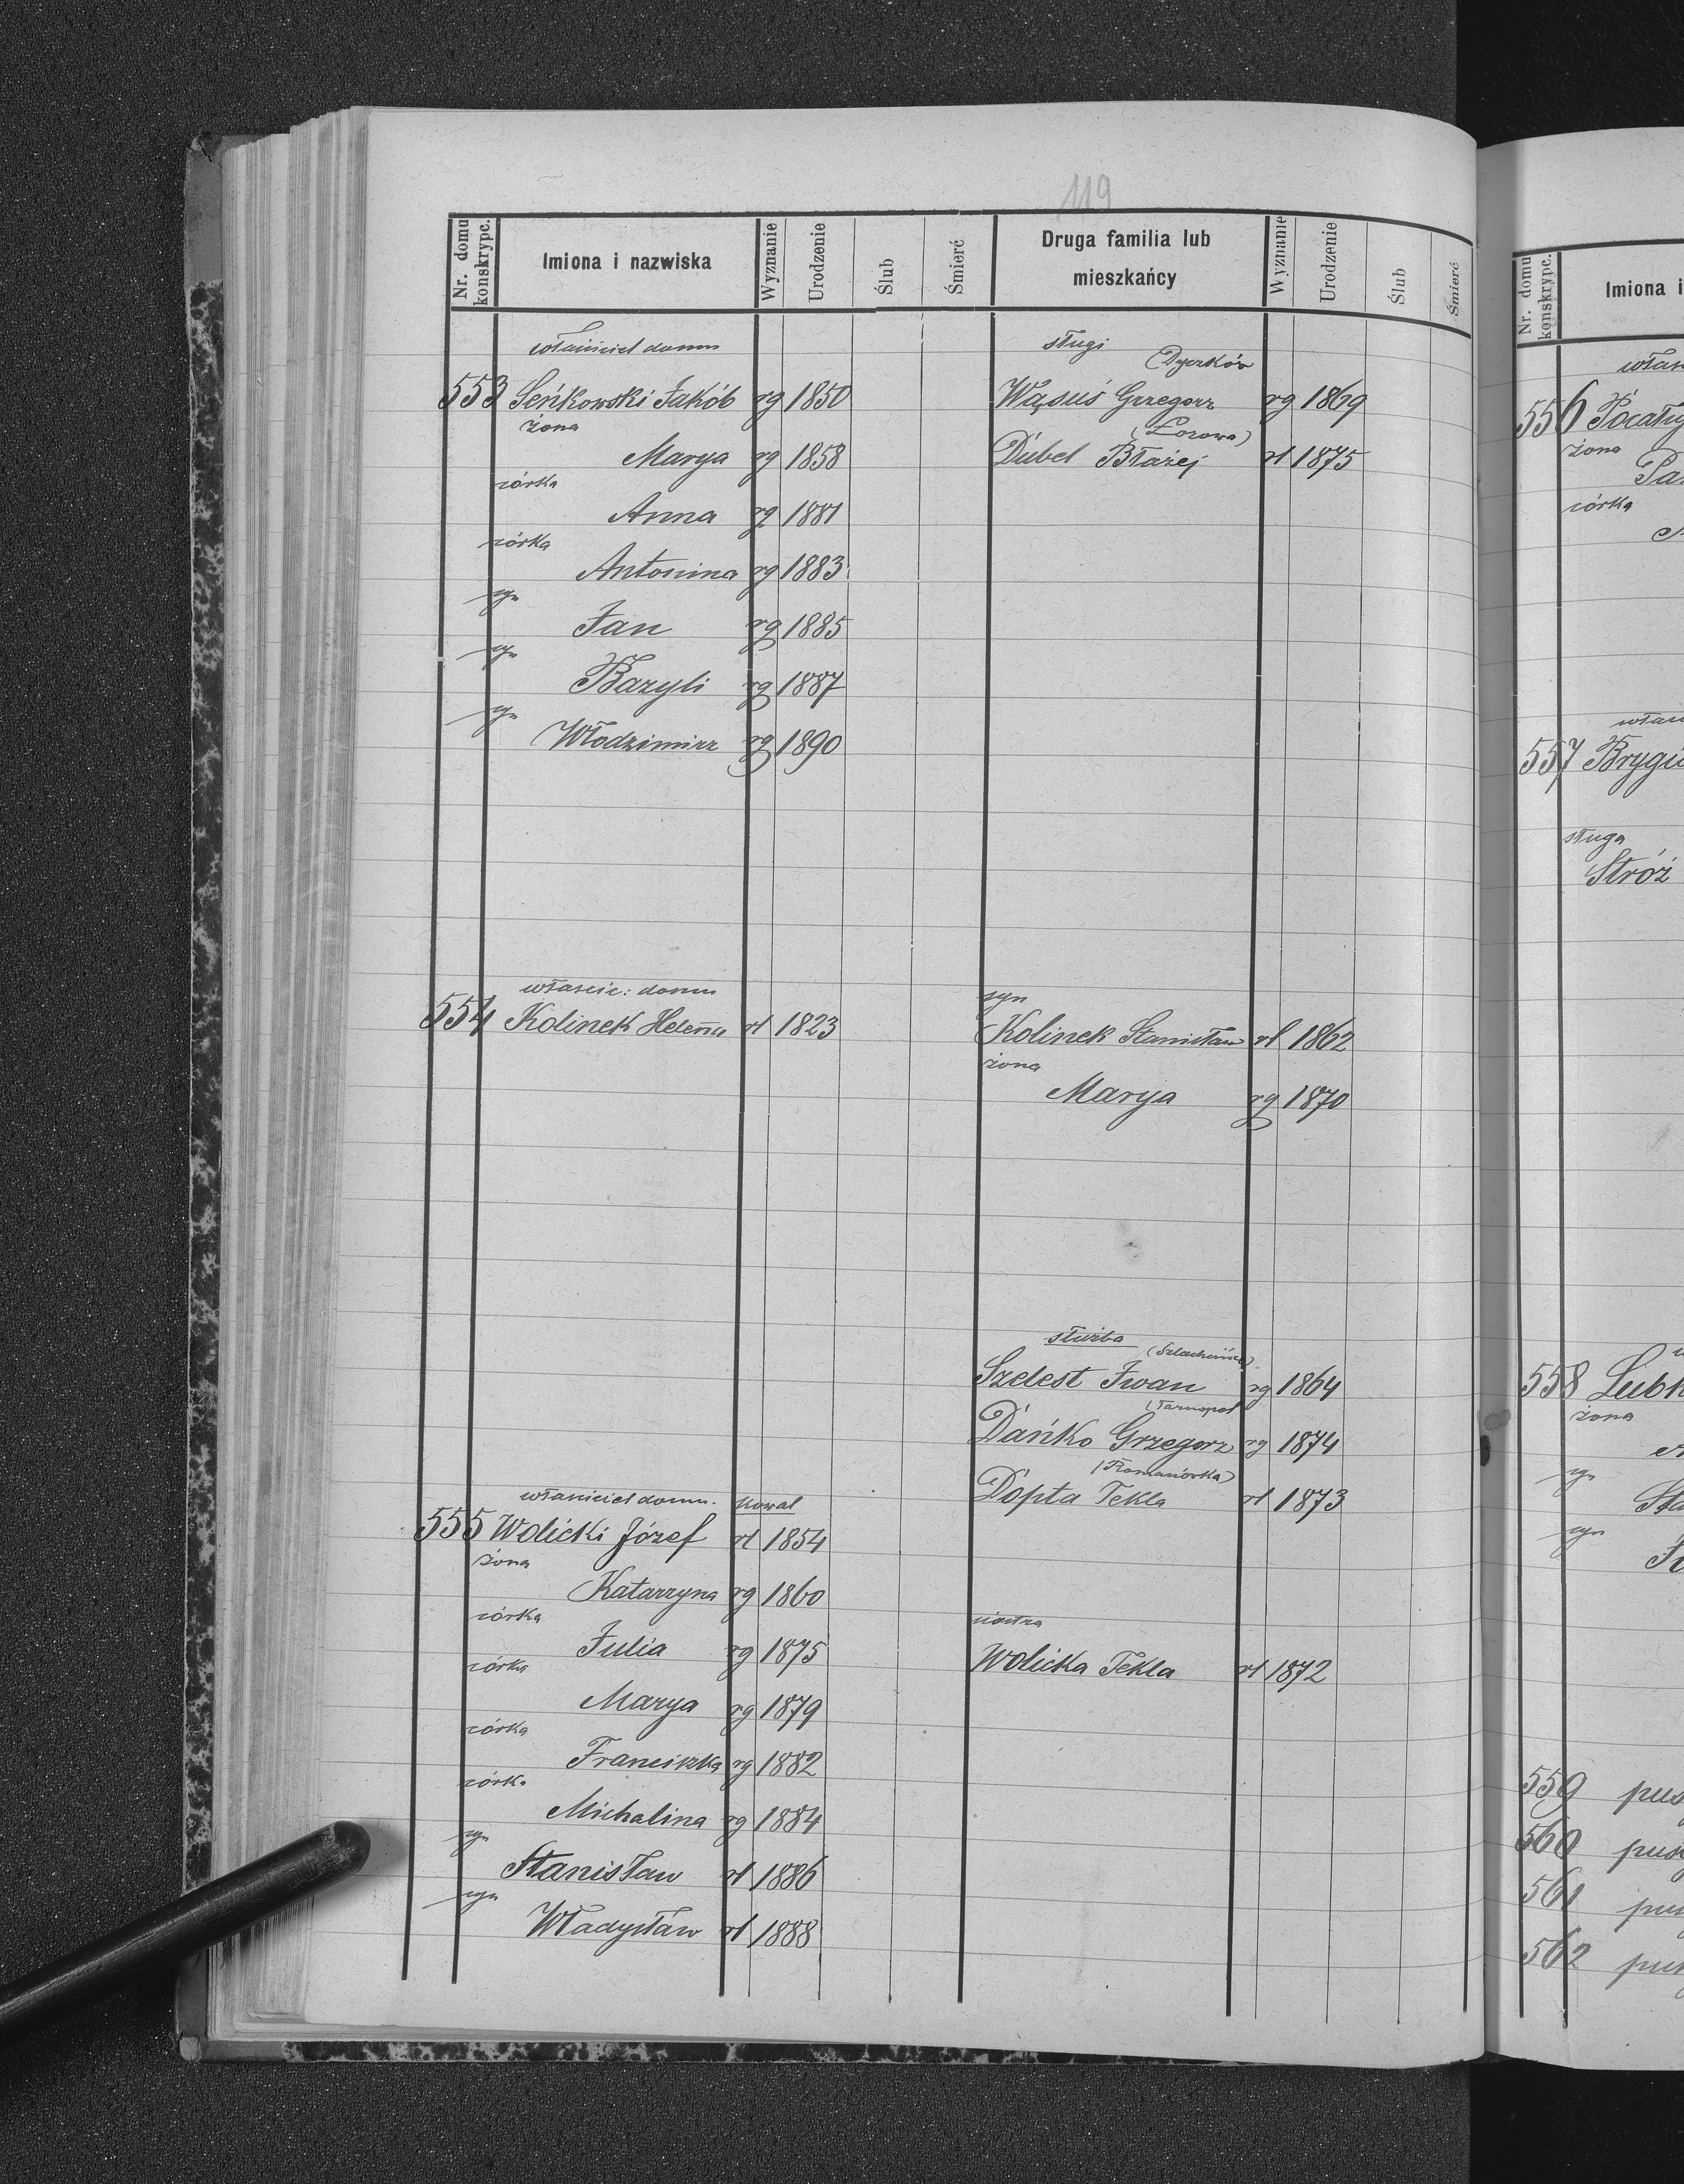 119
Nr. domu konskrypc.
Imiona i nazwiska
Wyznanie
Urodzenie
Ślub
Śmierć
Druga familia lub mieszkańcy
Wyznanie
Urodzenie
Ślub
Śmierć
właściciel domu
553 Seńkowski Jakób rg 1850
żona
Marya rg 1858
córka
Anna rg 1881
córka
Antonina rg 1883
syn
Jan rg 1885
syn
Bazyli rg 1887
syn
Włodzimirz rg 1890
sługi
(Dyczków
Wąsuś Grzegorz rg 1869
(Łozowa)
Dubel Błażej rł 1875
właścic: domu
554 Kolinek Helena rł 1823
syn
Kolinek Stanisław rł 1862
żona
Marya rg 1870
służba
Szelest Iwan rg 1864
(Tarnopol
Dańko Grzegorz rg 1874
(Romanówka)
Dopta Tekla rł 1873
właściciel domu. kowal
555 Wolicki Józef rł 1854
żona
Katarzyna rg 1860
córka
Julia rg 1875
córka
Marya rg 1879
córka
Franciszka rg 1882
córka
Michalina rg 1884
syn
Stanisław rł 1886
syn
Władysław rł 1888
siostra
Wolicka Tekla rł 1872
Nr. domu konskrypc.
Imiona i
właś
556
żona
córka
557 Brygi
sługa
Stróż
558 Lubk
żona
syn
syn
559 pus
560 pus
561 pus
562 pus